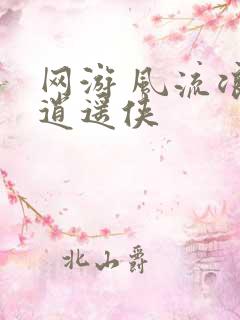 网游风流
逍遥侠
北山爵